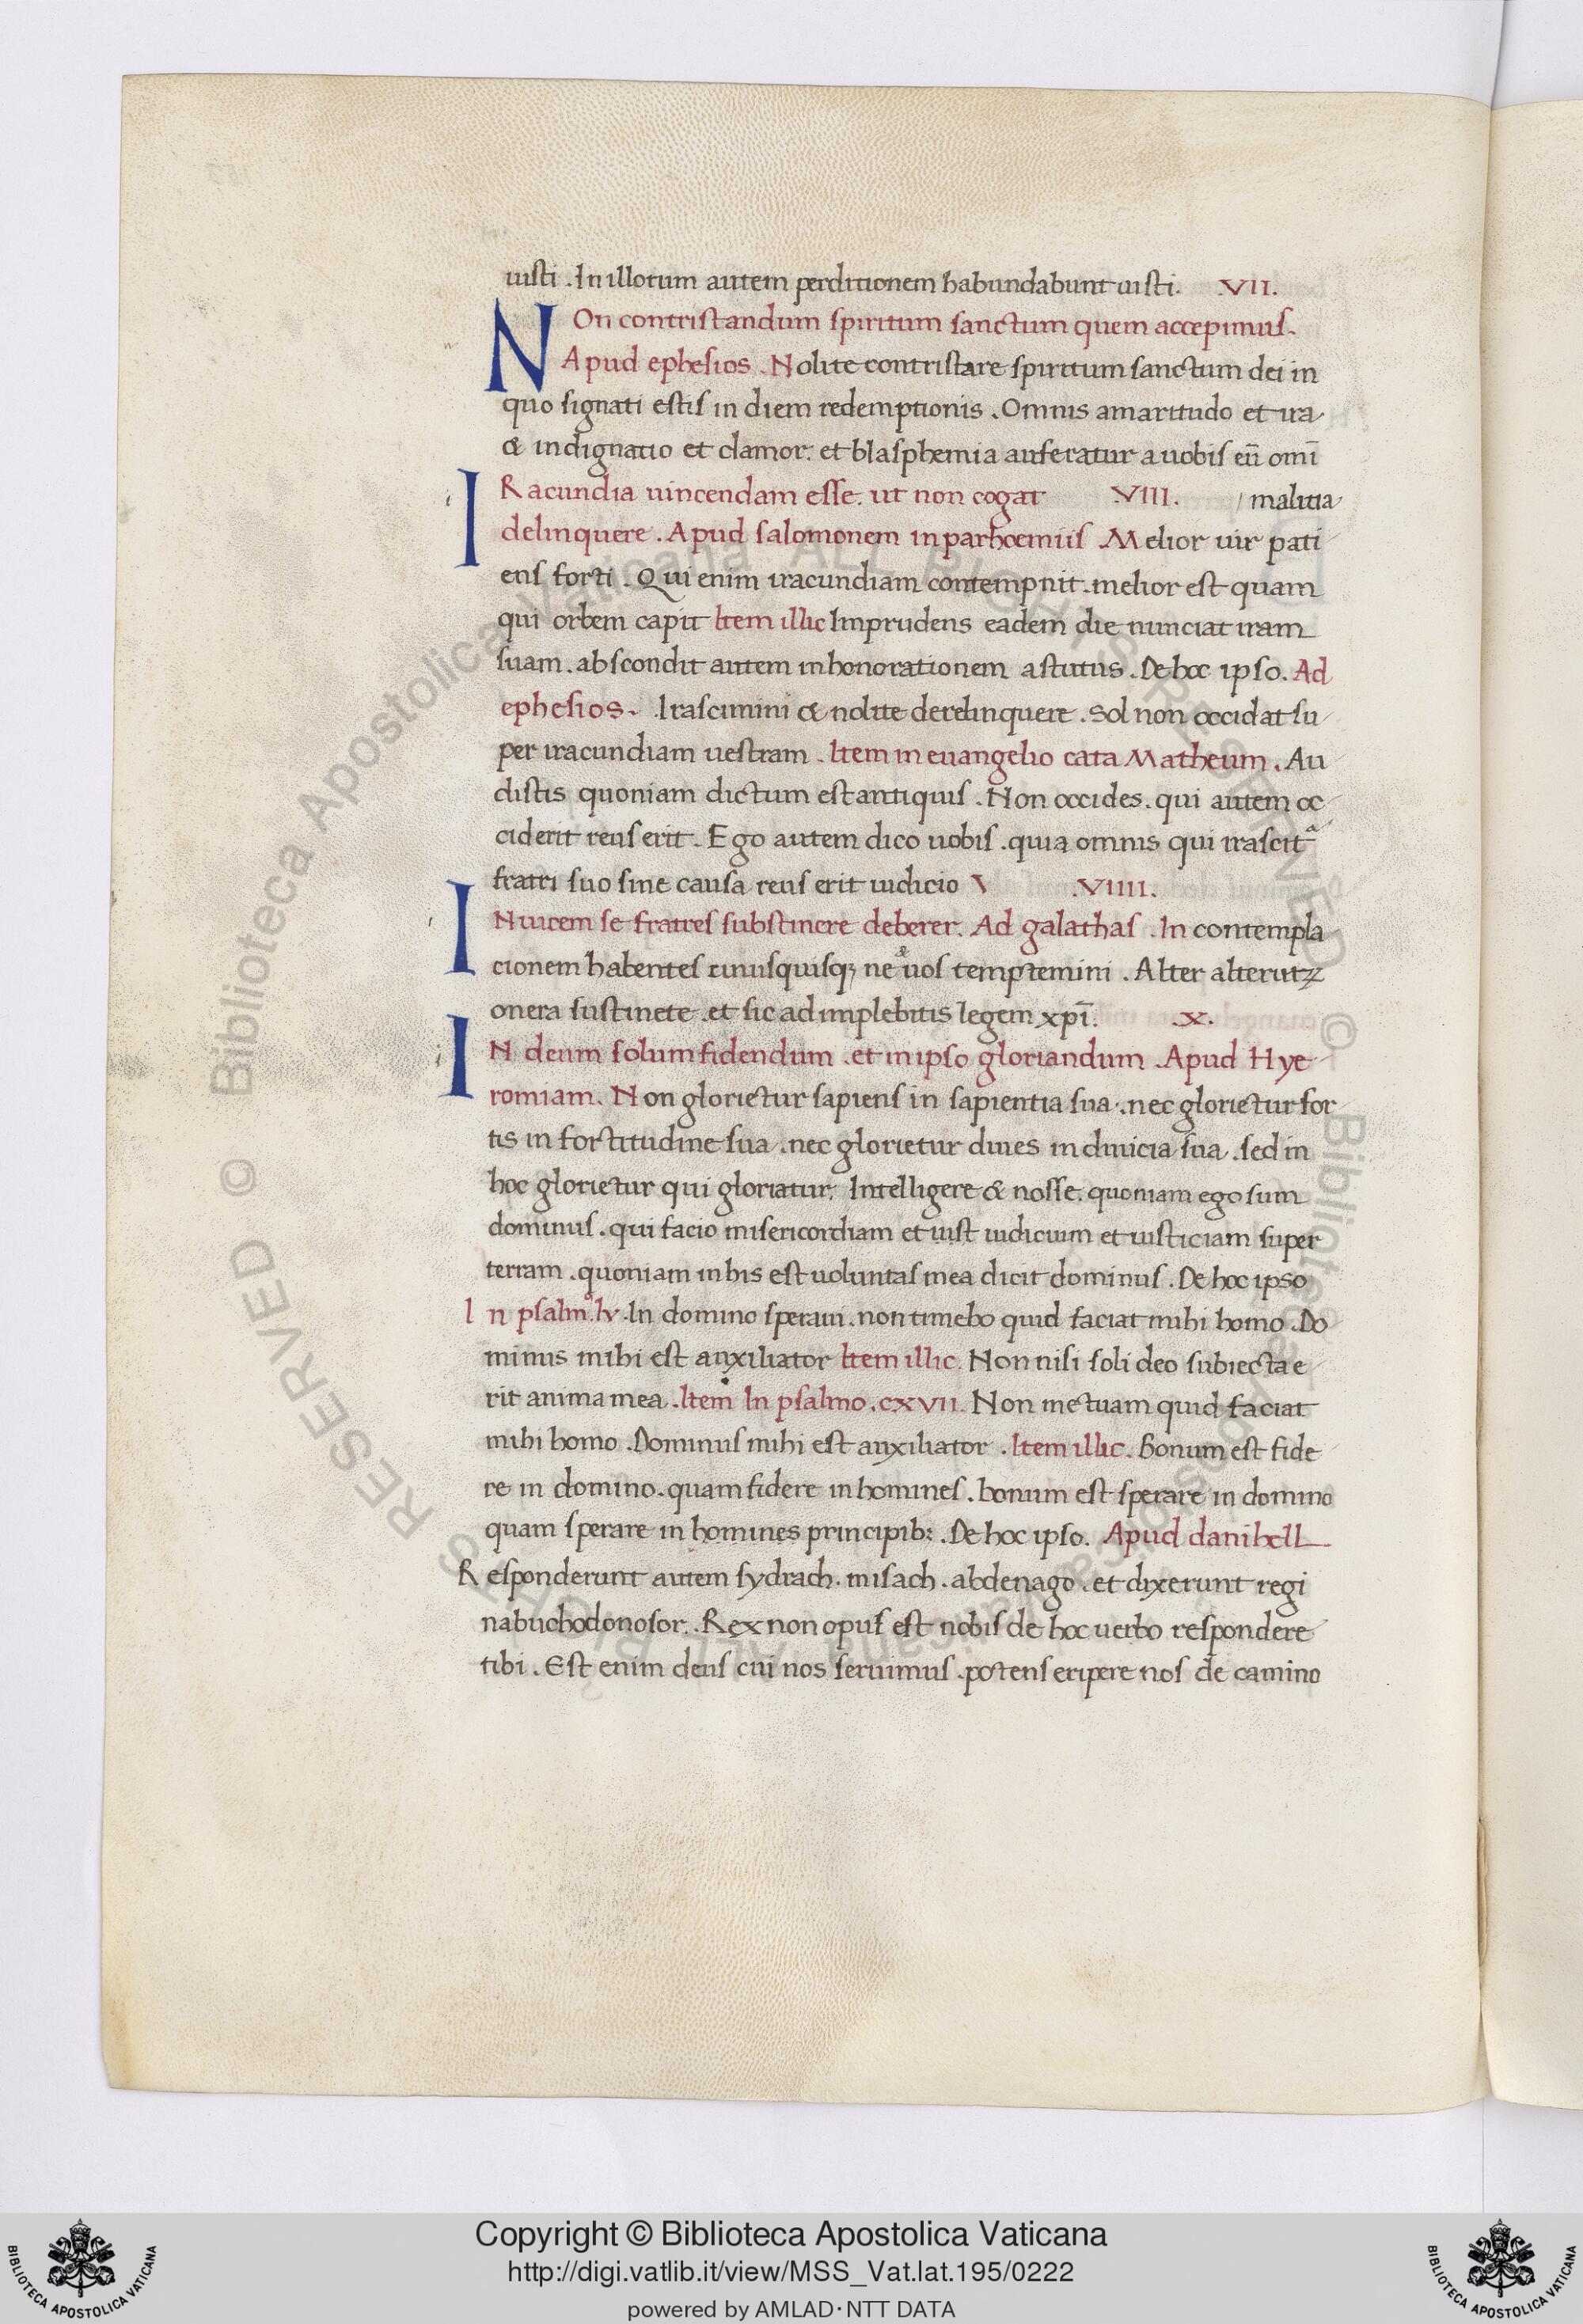 iusti . In illorum autem perditionem habundabunt iusti. .VII.
NOn contristandum spiritum sanctum quem accepimus.
Apud ephesios . Nolite contristare spiritum sanctum dei in
quo signati estis in diem redemptionis . Omnis amaritudo et ira
& indignatio et clamor. et blasphemia auferatur a uobis cū omī
IRacundia uincendam esse. ut non cogat .VIII. / malitia
delinquere . Apud salomonem in parhoemiis . Melior uir pati
ens forti . Qui enim iracundiam contempnit . melior est quam
qui orbem capit Item illic Imprudens eadem die nunciat iram
suam . abscondit autem inhonorationem astutus . De hoc ipso. Ad
ephesios . Irascimini & nolite derelinquere . Sol non occidat su
per iracundiam uestram . Item in euangelio cata Matheum . Au
distis quoniam dictum est antiquis . Non occides . qui autem oc
ciderit reus erit . Ego autem dico uobis . quia omnis qui irascit᷑
fratri suo sine causa reus erit iudicio V .VIIII.
INuicem se fratres substinere deberer. Ad galathas . In contempla
cionem habentes unusquisq; ne & uos temptemini . Alter alterutꝝ
onera sustinete . et sic adimplebitis legem xpī. .X.
IN deum solum fidendum . et in ipso gloriandum . Apud Hye
romiam . Non glorietur sapiens in sapientia sua . nec glorietur for
tis in fortitudine sua . nec glorietur diues in diuicia sua . sed in
hoc glorietur qui gloriatur. Intelligere & nosse . quoniam ego sum
dominus . qui facio misericordiam et iust iudicium et iusticiam super
terram . quoniam in his est uoluntas mea dicit dominus . De hoc ipso
In psalmº. lv . In domino speraui . non timebo quid faciat mihi homo . Do
minus mihi est auxiliator Item illic . Non nisi soli deo subiecta e
rit anima mea . Item In psalmo . cxvii . Non metuam quid faciat
mihi homo . Dominus mihi est auxiliator . Item illic . Bonum est fide
re in domino . quam fidere in homines . bonum est sperare in domino
quam sperare in homines principib: . De hoc ipso . Apud danihell
Responderunt autem sydrach . misach . abdenago . et dixerunt regi
nabuchodonosor. . Rex non opus est nobis de hoc uerbo respondere
tibi . Est enim deus cui nos seruimus . potens eripere nos de camino
© Biblioteca Apostolica Vaticana ALL RIGHTS RESERVED © Biblioteca Apostolica Vaticana ALL RIGHTS RESERVED
Copyright © Biblioteca Apostolica Vaticana
http://digi.vatlib.it/view/MSS_Vat.lat.195/0222
powered by AMLAD·NTT DATA
BIBLIOTECA APOSTOLICA VATICANA
BIBLIOTECA APOSTOLICA VATICANA